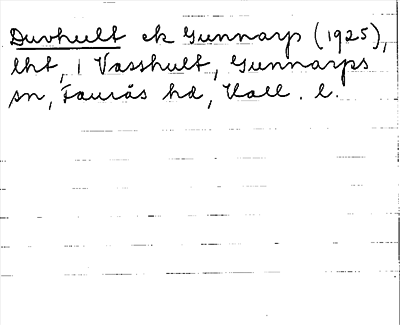 Duvhult ek Gunnarp (1925),
lht, 1 Vasshult, Gunnarps
sn, Faurås hd, Hall. l.